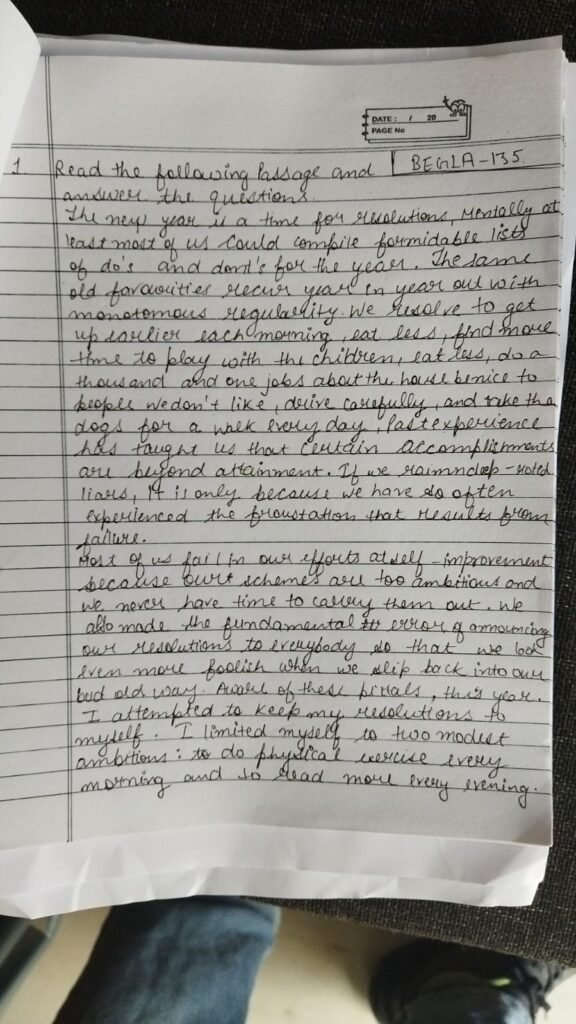 DATE: / 20
PAGE No
BEGLA-135
1 Read the following Passage and
answer the questions.
The new year is a time for resolutions, mentally at
least most of us could compile formidable lists
of do's and dont's for the year. The same
old favaouities recur year in year out with
monotomous regularity. We resolve to get
up earlier each morning, eat less, find more
time to play with the children, eat less, do a
thousand and one jobs about the house be nice to
people we don't like, drive carefully, and take the
dogs for a walk every day, Past experience
has taught us that certain accomplishments
are beyond attainment. If we deep-rooted
liars, it is only because we have so often
experienced the that results from
failure.
Most of us fail in our efforts at self-improvement
because our schemes are too ambitious and
we never have time to carry them out. We
also made the fundamental error of announcing
our resolutions to everybody so that we look
even more foolish when we slip back into our
bad old way. Aware of these , this year.
I attempted to keep my resolutions to
myself. I limited myself to two modest
ambitions: to do physical exercise every
morning and so read more every evening.